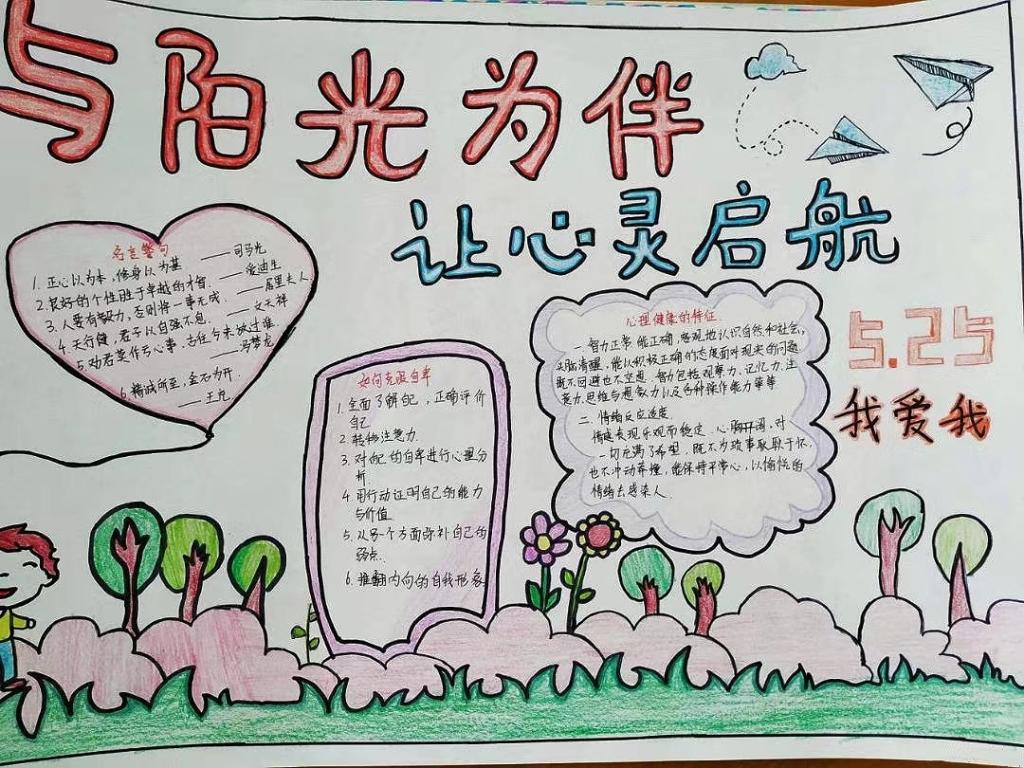 与阳光为伴
让心灵启航
名言警句
1. 正心以为本，修身以为基 ——司马光
2. 良好的个性胜于卓越的才智. ——爱迪生
3. 人要有毅力，否则将一事无成. ——居里夫人
4. 天行健，君子以自强不息. ——文天祥
5. 劝君莫作亏心事，古往今来放过谁.
——冯梦龙
6. 精诚所至，金石为开.
——王充
如何克服自卑
1. 全面了解自己，正确评价
自己
2. 转移注意力.
3. 对自己的自卑进行心理分
析
4. 用行动证明自己的能力
与价值
5. 从另一个方面弥补自己的
弱点.
6. 推翻内向的自我形象
心理健康的特征.
一. 智力正常. 能正确，客观地认识自然和社会，
头脑清醒，能以积极正确的态度面对现实的问题
既不回避也不空想. 智力包括观察力、记忆力、注
意力、思维与想象力以及各种操作能力等等
二. 情绪反应适度.
情绪表现乐观而稳定，心胸开阔，对
一切充满了希望. 既不为琐事耿耿于怀，
也不冲动莽撞，能保持平常心，以愉悦的
情绪去感染人.
5.25
我爱我